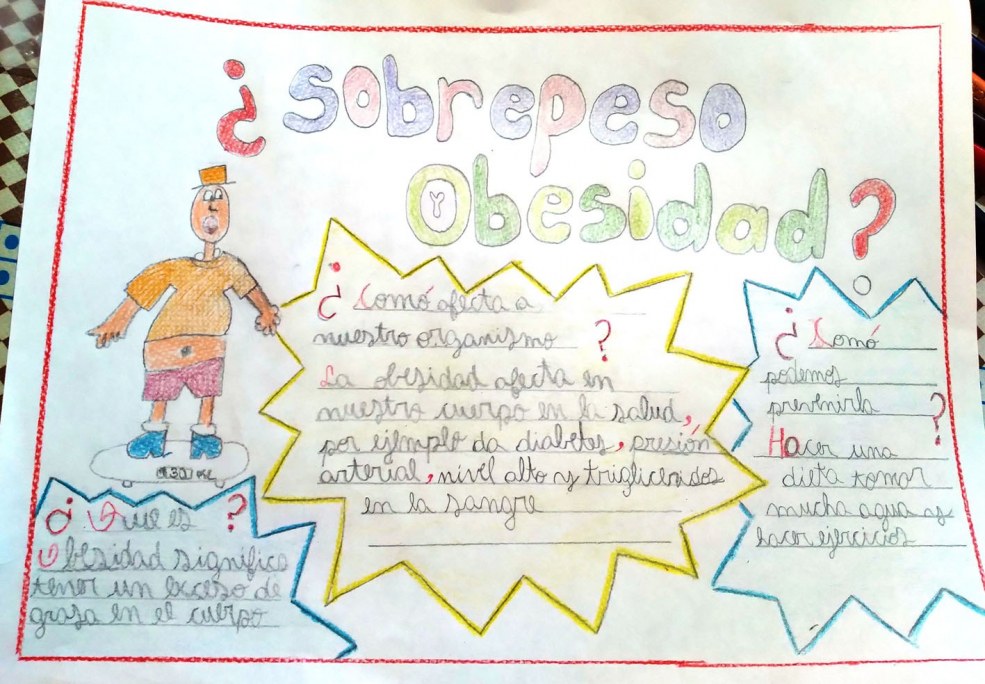 ¿Sobrepeso
y Obesidad?
¿Comó afecta a
nuestro organismo ?
La obesidad afecta en
nuestro cuerpo en la salud,
por ejemplo da diabetes, presión
arterial, nivel alto y trigliceridos
en la sangre
¿Comó
podemos
prevenirla ?
Hacer una
dieta tomar
mucha agua y
hacer ejercicios
¿Que es ?
Obesidad significa
tener un exceso de
grasa en el cuerpo